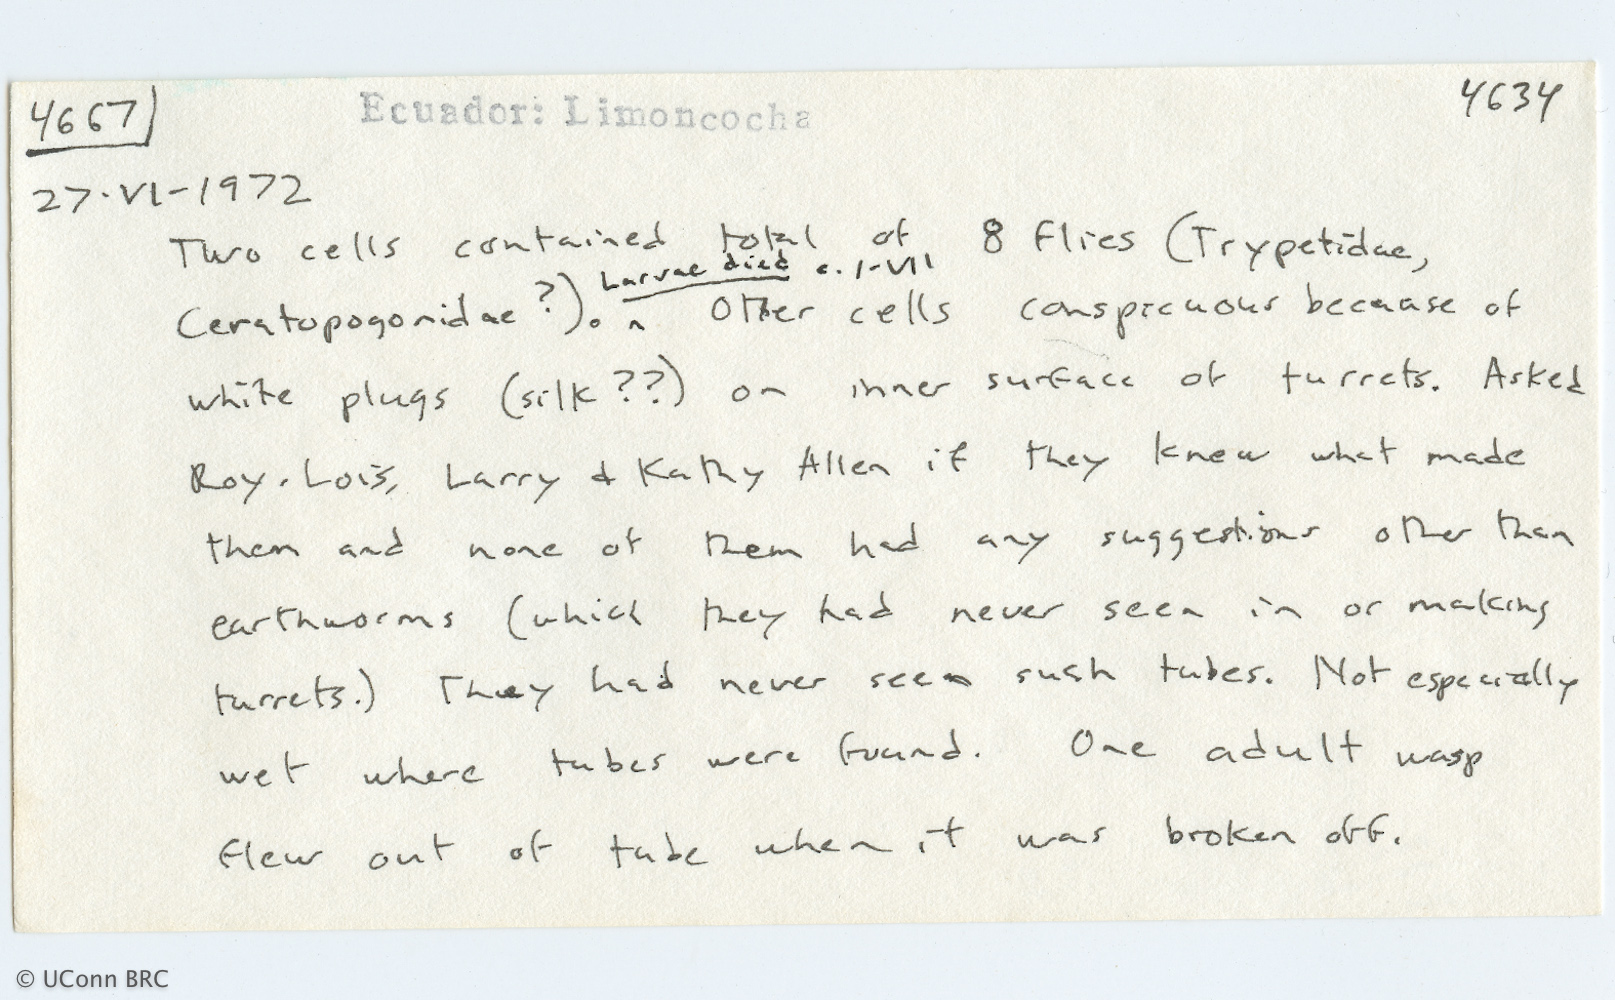 4667
Ecuador: Limoncocha
4634
27-VI-1972
Two cells contained total of 8 flies (Trypetidae,
Larvae died c. 1-VII
Ceratopogonidae?). ^ Other cells conspicuous because of
white plugs (silk??) on inner surface of turrets. Asked
Roy, Lois, Larry & Kathy Allen if they knew what made
them and none of them had any suggestions other than
earthworms (which they had never seen in or making
turrets.) They had never seen such tubes. Not especially
wet where tubes were found. One adult wasp
flew out of tube when it was broken off.
© UConn BRC